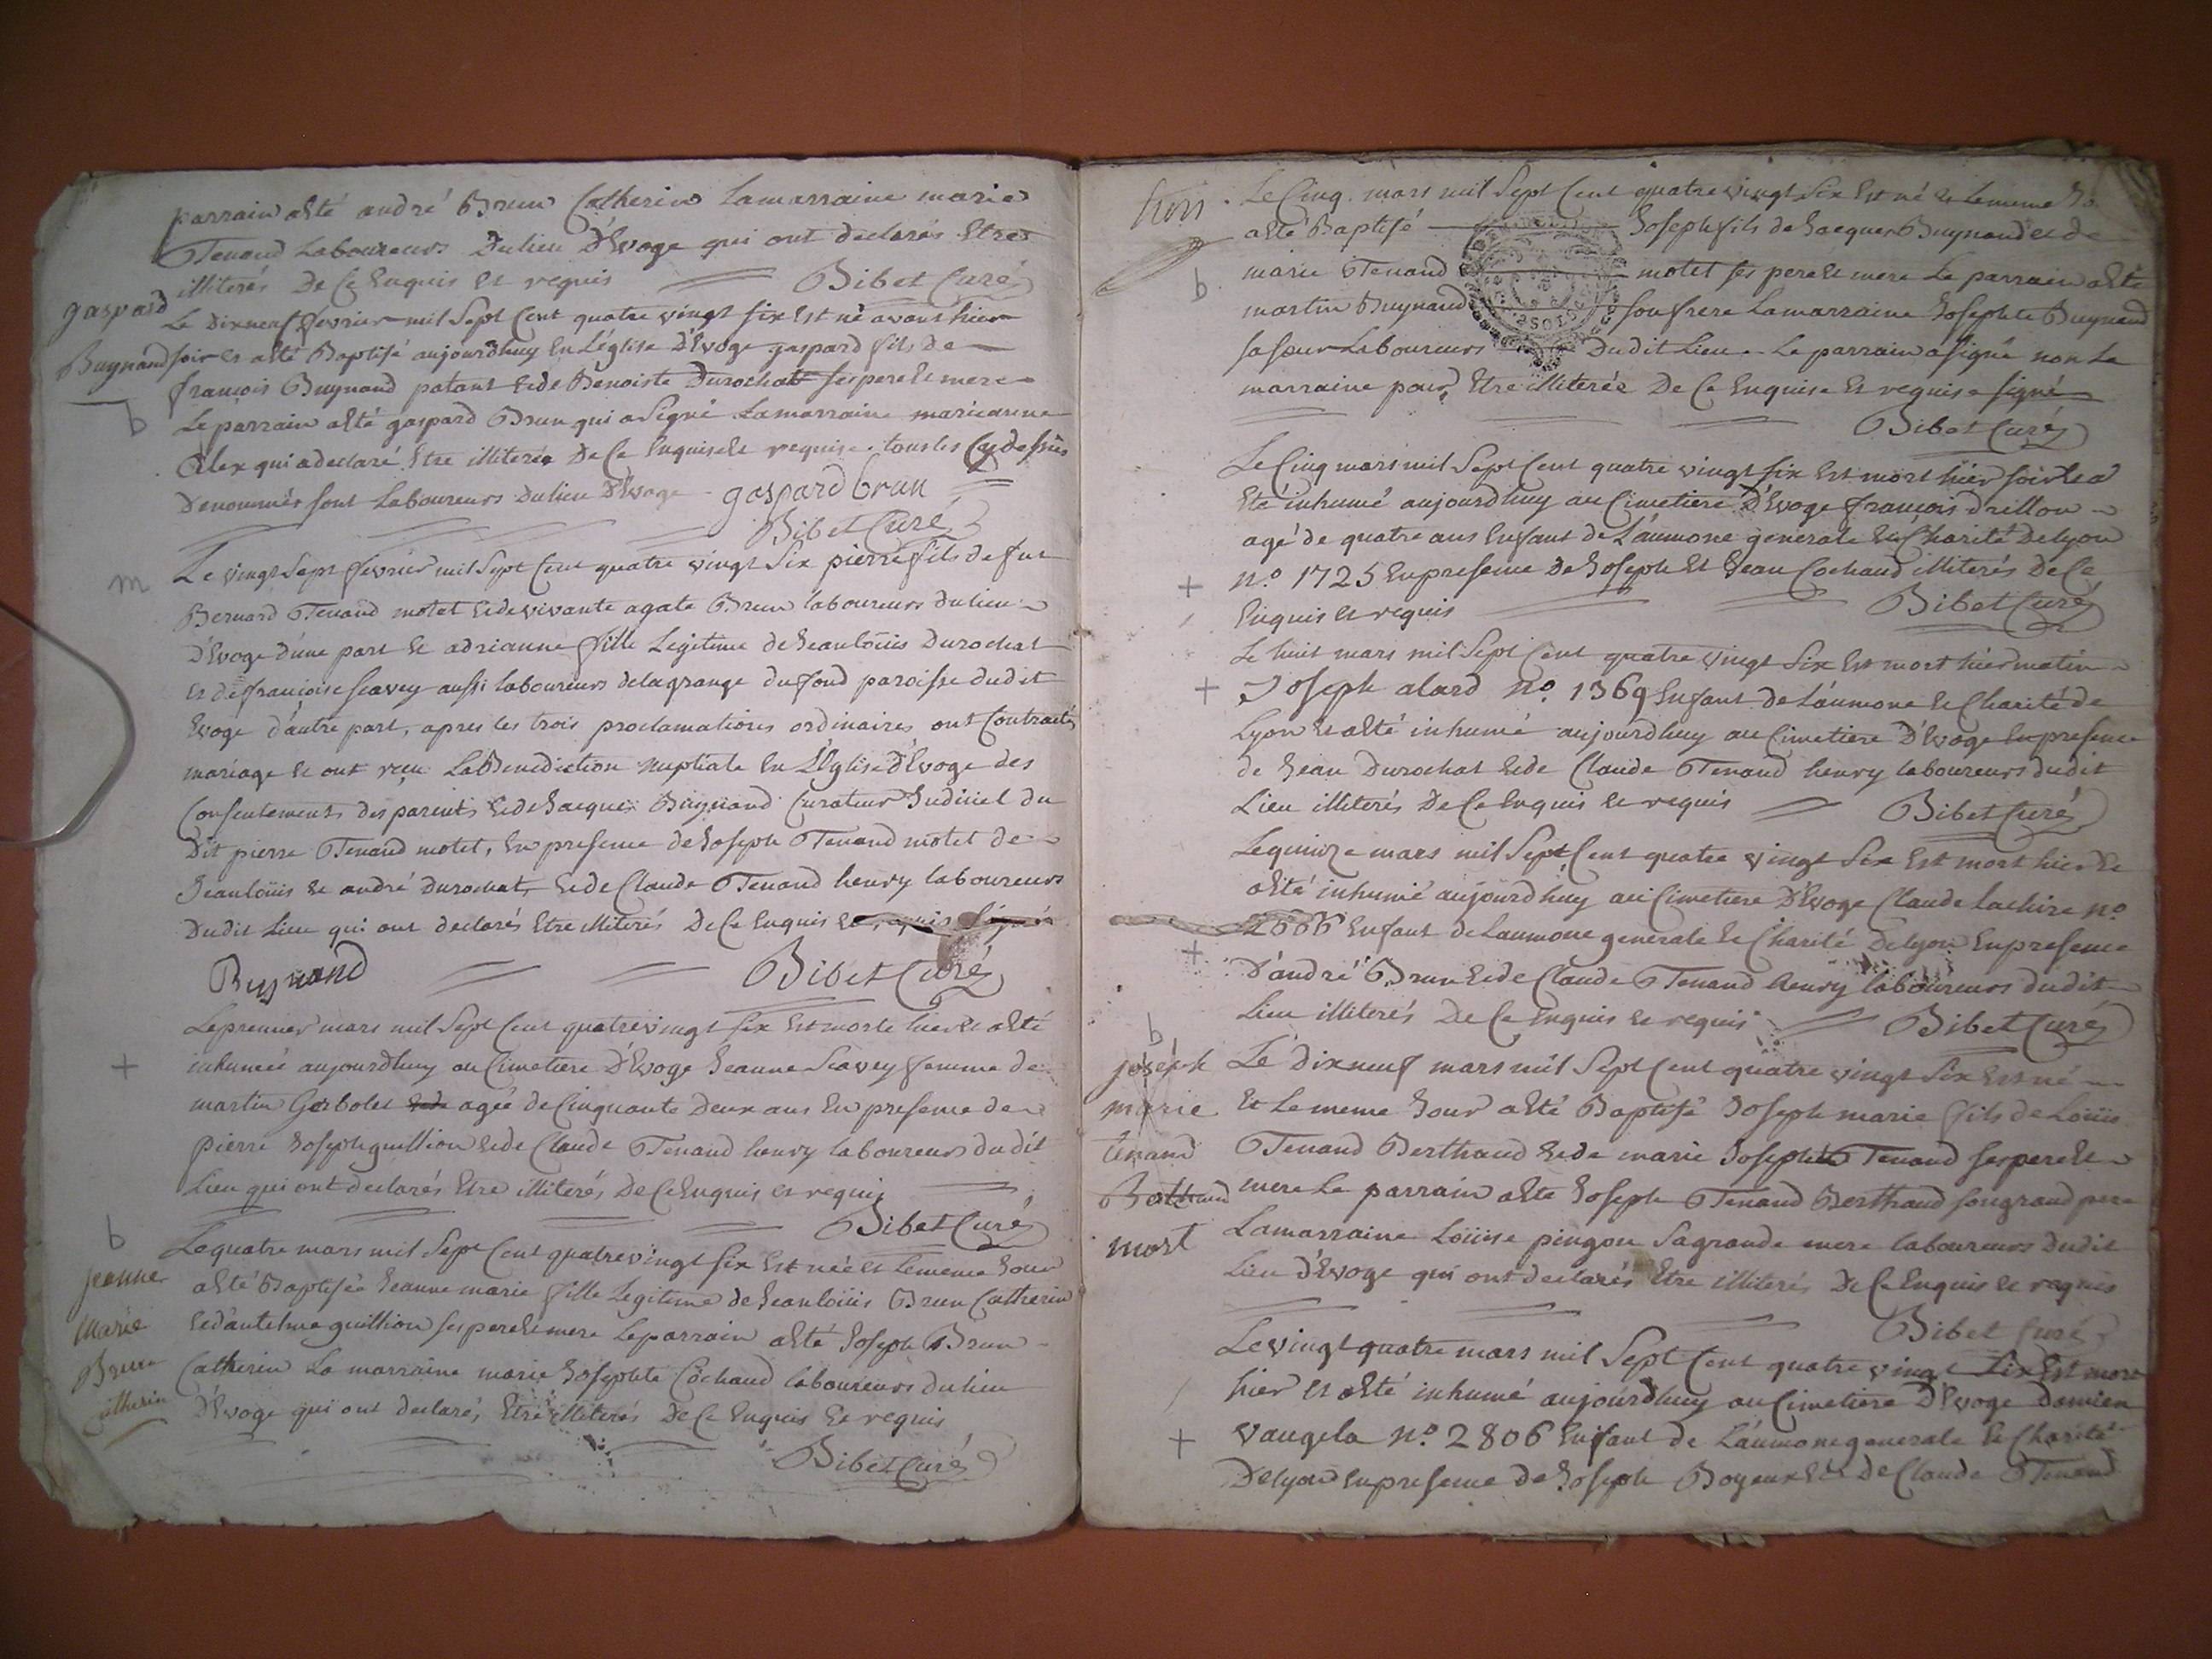 parrain a Eté andré Brun Catherin La marraine marie
Tenand Laboureurs Du lieu D'Evoge qui ont declarés Etre
illiterés De Ce Enquis et requis Bibet Curé
gaspard
Buynand
b
Le Dixneuf fevrier mil Sept Cent quatre vingt six Est né avant hier
soir et a Eté Baptisé aujourdhuy En L'église D'Evoge gaspard fils de
françois Buynand patant Et de Benoiste Durochat ses pere et mere
Le parrain a Eté gaspard Brun qui a Signé La marraine marie anne
Alex qui a declaré Etre illiterée De Ce Enquise Et requise. tous les Cy dessus
Denommés sont Laboureurs Du lieu D'Evoge gaspard brun
Bibet Curé
m
Le vingt Sept fevrier mil Sept Cent quatre vingt Six pierre fils de fut
Bernard Tenand motet Et de vivante agate Brun laboureurs du lieu
d'Evoge d'une part Et adrianne fille Legitime de Jean loüis Durochat
et de françoise scavey aussi laboureurs de la grange du fond paroisse dudit
Evoge d'autre part, apres les trois proclamations ordinaires, ont Contractés
mariage Et ont reçu La Benediction nuptiale En L'Eglise D'Evoge des
Consentements des parents Et de Jacques Buynand Curateur Judiciel du
Dit pierre Tenand motet, En presence de Joseph Tenand motet de
Jean loüis Et andré Durochat, Et de Claude Tenand henry laboureurs
Dudit Lieu qui ont declarés Etre illiterés De Ce Enquis Et requis
Buynand Bibet Curé
+
Le premier mars mil Sept Cent quatre vingt six Est morte hier Et a Eté
inhumée aujourdhuy au Cimetiere D'Evoge Jeanne Scavey femme de
martin Gerbolet agée de Cinquante Deux ans En presence de
pierre Joseph guillion Et de Claude Tenand henry laboureurs dudit
Lieu qui ont declarés Etre illiterés De Ce Enquis et requis
Bibet Curé
b
jeanne
Marie
Brun
Catherin
Le quatre mars mil Sept Cent quatre vingt six Est née et le meme Jour
a Eté Baptisée Jeanne marie fille Legitime de Jean loüis Brun Catherin
Et d'antelme guillion ses pere Et mere Le parrain a Eté Joseph Brun
Catherin La marraine marie Josephte Cochaud laboureurs du lieu
D'Evoge qui ont declarés Etre illiterés De Ce Enquis Et requis
Bibet Curé
trois
b
Le Cinq mars mil Sept Cent quatre vingt Six Est né Et le meme Jo
a Eté Baptisé Joseph fils de Jacques Buynand et de
marie Tenand motet ses pere Et mere Le parrain a Eté
martin Buynand son frere La marraine Josephte Buynand
sa soeur Laboureurs Dudit Lieu. Le parrain a signé non La
marraine pour Etre illiterée De Ce Enquise Et requise signé
Bibet Curé
+
Le Cinq mars mil Sept Cent quatre vingt six Est mort hier soir Et a
Eté inhumé aujourdhuy au Cimetiere D'Evoge françois drillon
agé de quatre ans Enfant de L'aumone generale Et Charité De lyon
n.o 1725 En presence De Joseph Et Jean Cochaud illiterés De Ce
Enquis et requis Bibet Curé
+
Le huit mars mil Sept Cent quatre vingt Six Est mort hier matin
Joseph alard n.o 1369 Enfant De L'aumone Et Charité de
Lyon Et a Eté inhumé aujourdhuy au Cimetiere D'Evoge En presence
de Jean Durochat Et de Claude Tenand henry laboureurs dudit
Lieu illiterés De Ce Enquis Et requis Bibet Curé
+
Le quinze mars mil Sept Cent quatre vingt Six Est mort hier Et
a Eté inhumé aujourdhuy au Cimetiere D'Evoge Claude Lachize n.o
Enfant de L'aumone generale Et Charité De lyon En presence
D'andré Brun Et de Claude Tenand henry laboureurs dudit
Lieu illiterés De Ce Enquis Et requis Bibet Curé
b
joseph
marie
tenand
Berthaud
mort
Le dixneuf mars mil Sept Cent quatre vingt Six Est né
Et Le meme Jour a Eté Baptisé Joseph marie fils de Loüis
Tenand Berthaud Et de marie Josephte Tenand ses pere Et
mere Le parrain a Eté Joseph Tenand Berthaud son grand pere
La marraine Loüise pingon Sa grande mere laboureurs Dudit
Lieu d'Evoge qui ont declarés Etre illiterés De Ce Enquis Et requis
Bibet Curé
+
Le vingt quatre mars mil Sept Cent quatre vingt Six Est mort
hier Et a Eté inhumé aujourdhuy au Cimetiere D'Evoge Damien
Vangela n.o 2806 Enfant de L'aumone generale Et Charité
De lyon En presence de Joseph Boyeux Et De Claude Tenand